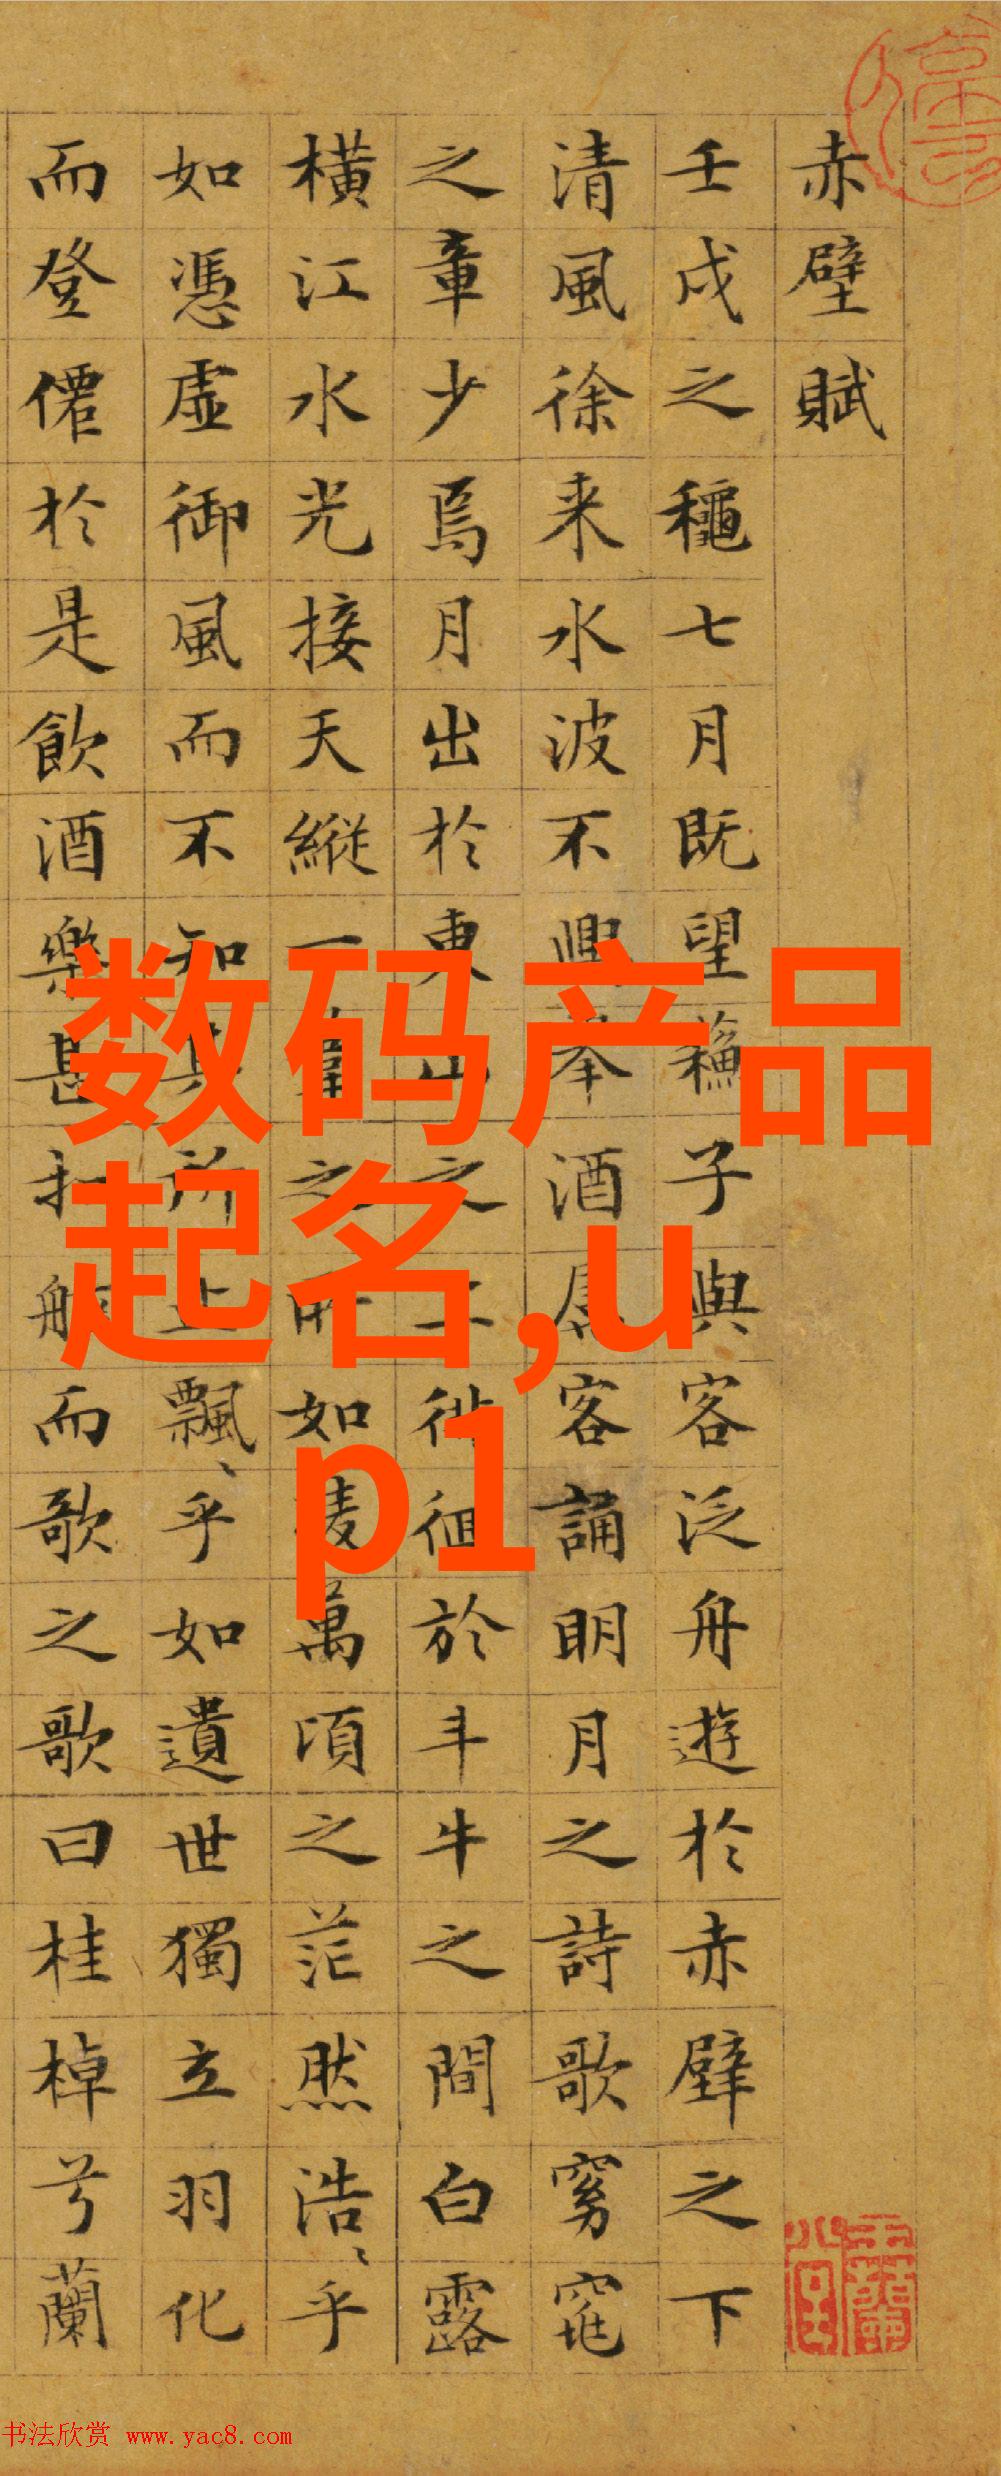 赤壁賦
壬戌之龝七月既望蘓子與客泛舟遊於赤壁之下
清風徐来水波不興舉酒屬客誦明月之詩歌窈窕
之章少焉月出於東山之上徘徊於斗牛之間白露
橫江水光接天縱一葦之所如凌萬頃之茫然浩、乎
如憑虛御風而不知其所止飄、乎如遺世獨立羽化
而登僊於是飲酒樂甚扣舷而歌之歌曰桂棹兮蘭
数码产品
起名,u
p1
书法欣赏 www.yac8.com